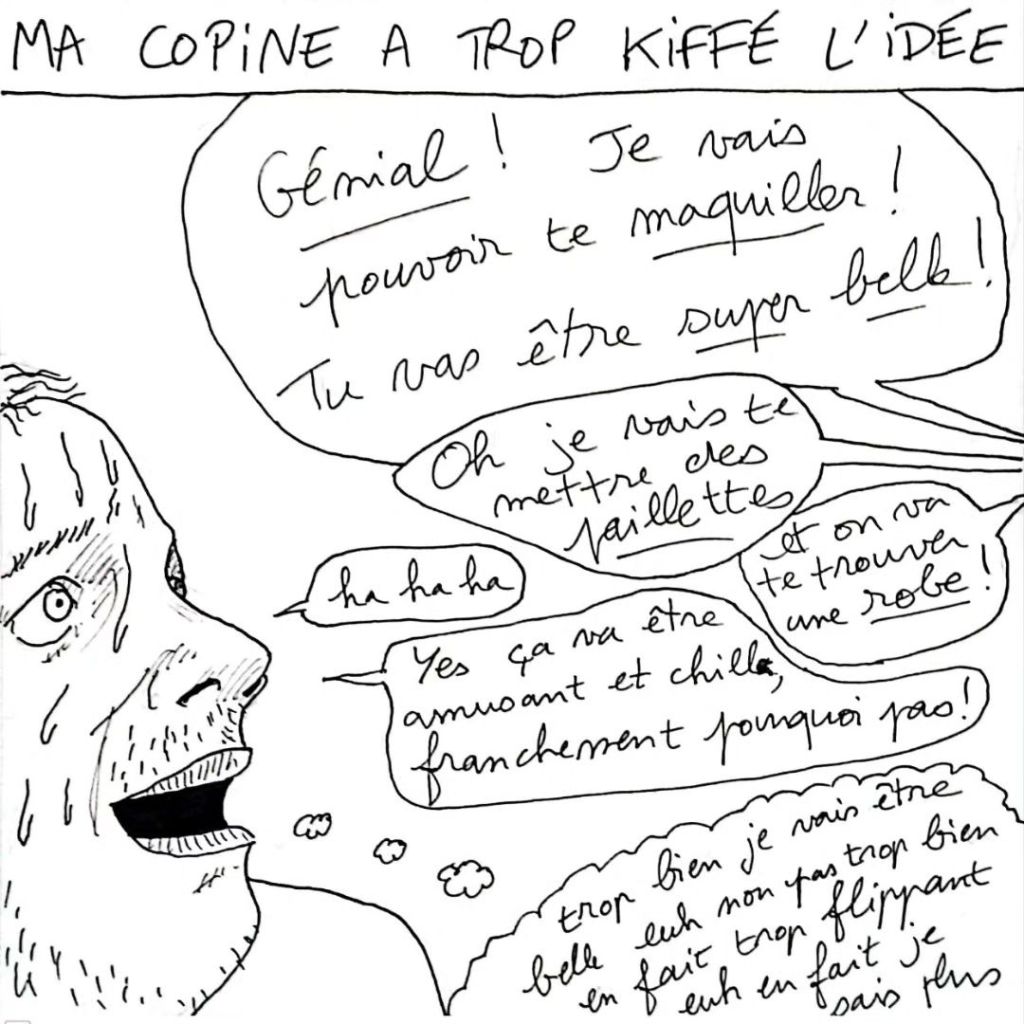 MA COPINE A TROP KIFFÉ L'IDÉE
Génial ! Je vais
pouvoir te maquiller !
Tu vas être super belle !
Oh je vais te
mettre des
paillettes
et on va
te trouver
une robe !
ha ha ha
Yes ça va être
amusant et chill,
franchement pourquoi pas !
trop bien je vais être
belle euh non pas trop bien
en fait trop flippant
euh en fait je
sais plus